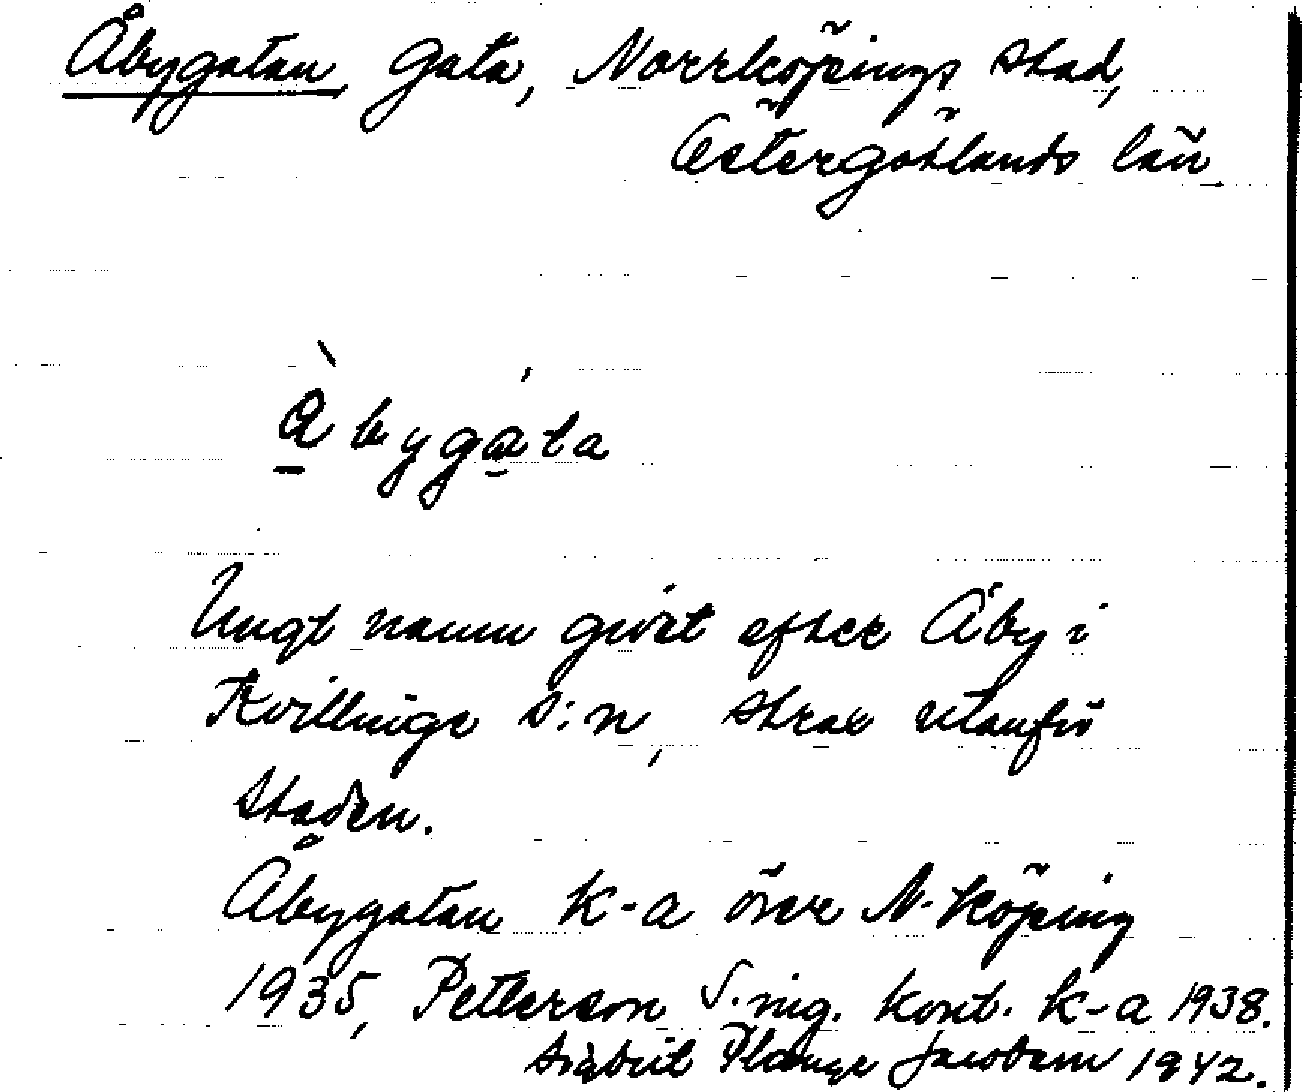 Åbygatan, Gata, Norrköpings stad,
Östergötlands län.
Åbygata
Ungt namn givet efter Åby i
Kvillinge s:n, strax utanför
staden.
Åbygatan K-a över N-köping
1935, Petterson S. ing. kont. K-a 1938.
Sigbrit Plænge Jacobson 1942.